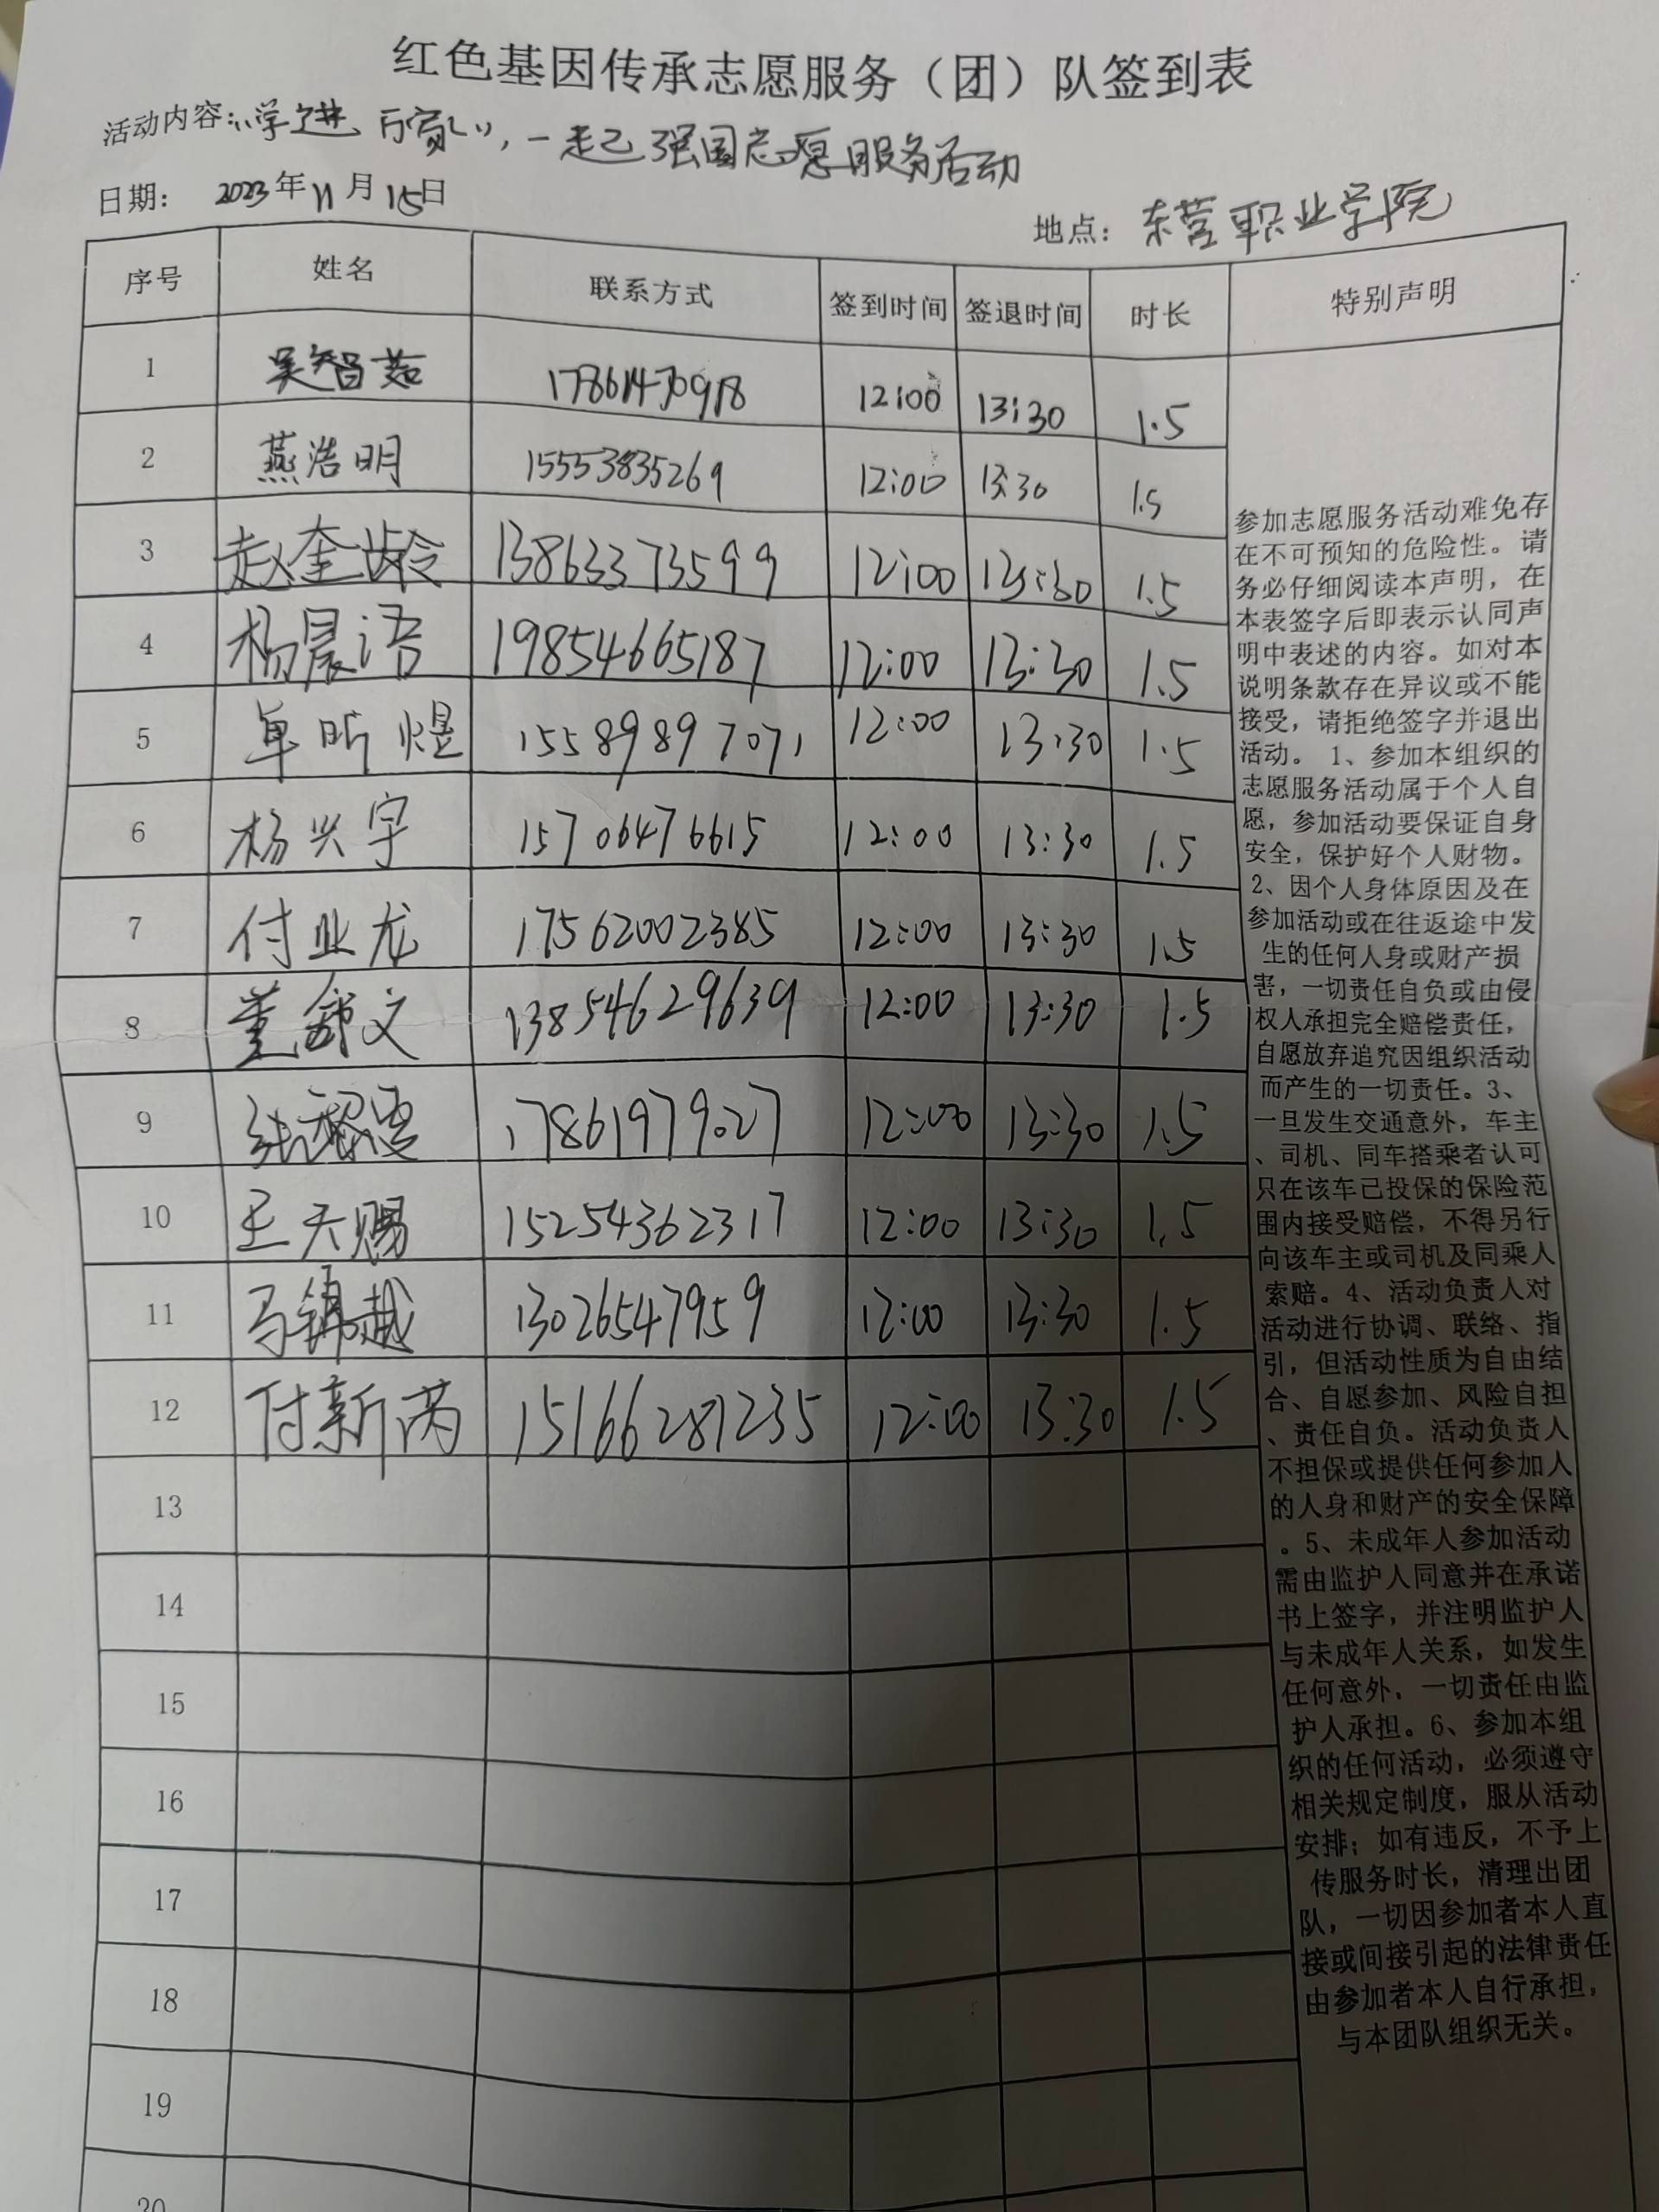 红色基因传承志愿服务（团）队签到表
活动内容：“学进 ，一起强国志愿服务活动
日期： 2023年11月15日
地点：东营职业学院
序号 姓名 联系方式 签到时间 签退时间 时长 特别声明
1 吴智茹 17861470918 12:00 13:30 1.5
2 燕浩明 15553835269 12:00 13:30 1.5
3 赵奎龄 13863373599 12:00 13:30 1.5
4 杨晨语 19854665187 12:00 13:30 1.5
5 单昕煜 15589897071 12:00 13:30 1.5
6 杨兴宇 15706476615 12:00 13:30 1.5
7 付业龙 17562002385 12:00 13:30 1.5
8 董舒文 13854629639 12:00 13:30 1.5
9 张 17861979027 12:00 13:30 1.5
10 王天赐 15254362317 12:00 13:30 1.5
11 马锦越 13026547959 12:00 13:30 1.5
12 付新芮 15166287235 12:00 13:30 1.5
13
14
15
16
17
18
19
20
参加志愿服务活动难免存
在不可预知的危险性。请
务必仔细阅读本声明，在
本表签字后即表示认同声
明中表述的内容。如对本
说明条款存在异议或不能
接受，请拒绝签字并退出
活动。 1、参加本组织的
志愿服务活动属于个人自
愿，参加活动要保证自身
安全，保护好个人财物。
2、因个人身体原因及在
参加活动或在往返途中发
生的任何人身或财产损
害，一切责任自负或由侵
权人承担完全赔偿责任，
自愿放弃追究因组织活动
而产生的一切责任。3、
一旦发生交通意外，车主
、司机、同车搭乘者认可
只在该车已投保的保险范
围内接受赔偿，不得另行
向该车主或司机及同乘人
索赔。4、活动负责人对
活动进行协调、联络、指
引，但活动性质为自由结
合、自愿参加、风险自担
、责任自负。活动负责人
不担保或提供任何参加人
的人身和财产的安全保障
。5、未成年人参加活动
需由监护人同意并在承诺
书上签字，并注明监护人
与未成年人关系，如发生
任何意外，一切责任由监
护人承担。6、参加本组
织的任何活动，必须遵守
相关规定制度，服从活动
安排；如有违反，不予上
传服务时长，清理出团
队，一切因参加者本人直
接或间接引起的法律责任
由参加者本人自行承担，
与本团队组织无关。